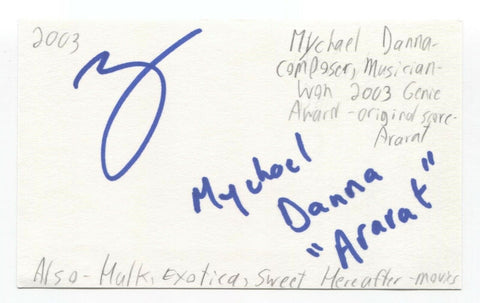 2003
Mychael Danna-
composer, Musician-
Won 2003 Genie
Award -original score-
Ararat
Mychael
Danna
"Ararat"
Also- Hulk, Exotica, Sweet Hereafter -movies